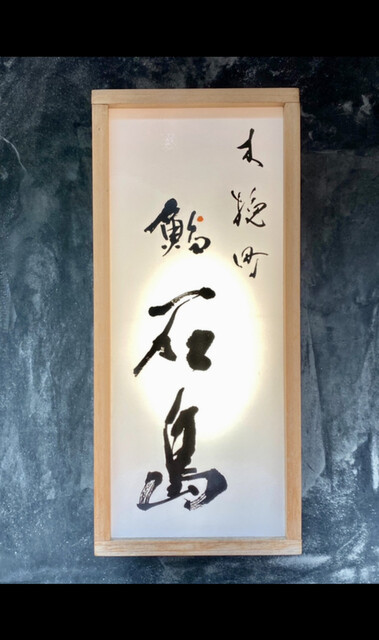 木挽町
鮨
石島